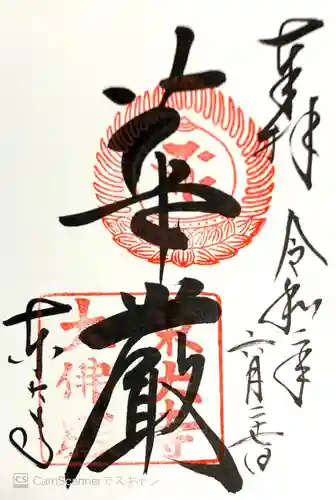 奉拝
令和二年
六月二十七日
華厳
東大寺
東大寺
大佛殿
CS CamScannerでスキャン